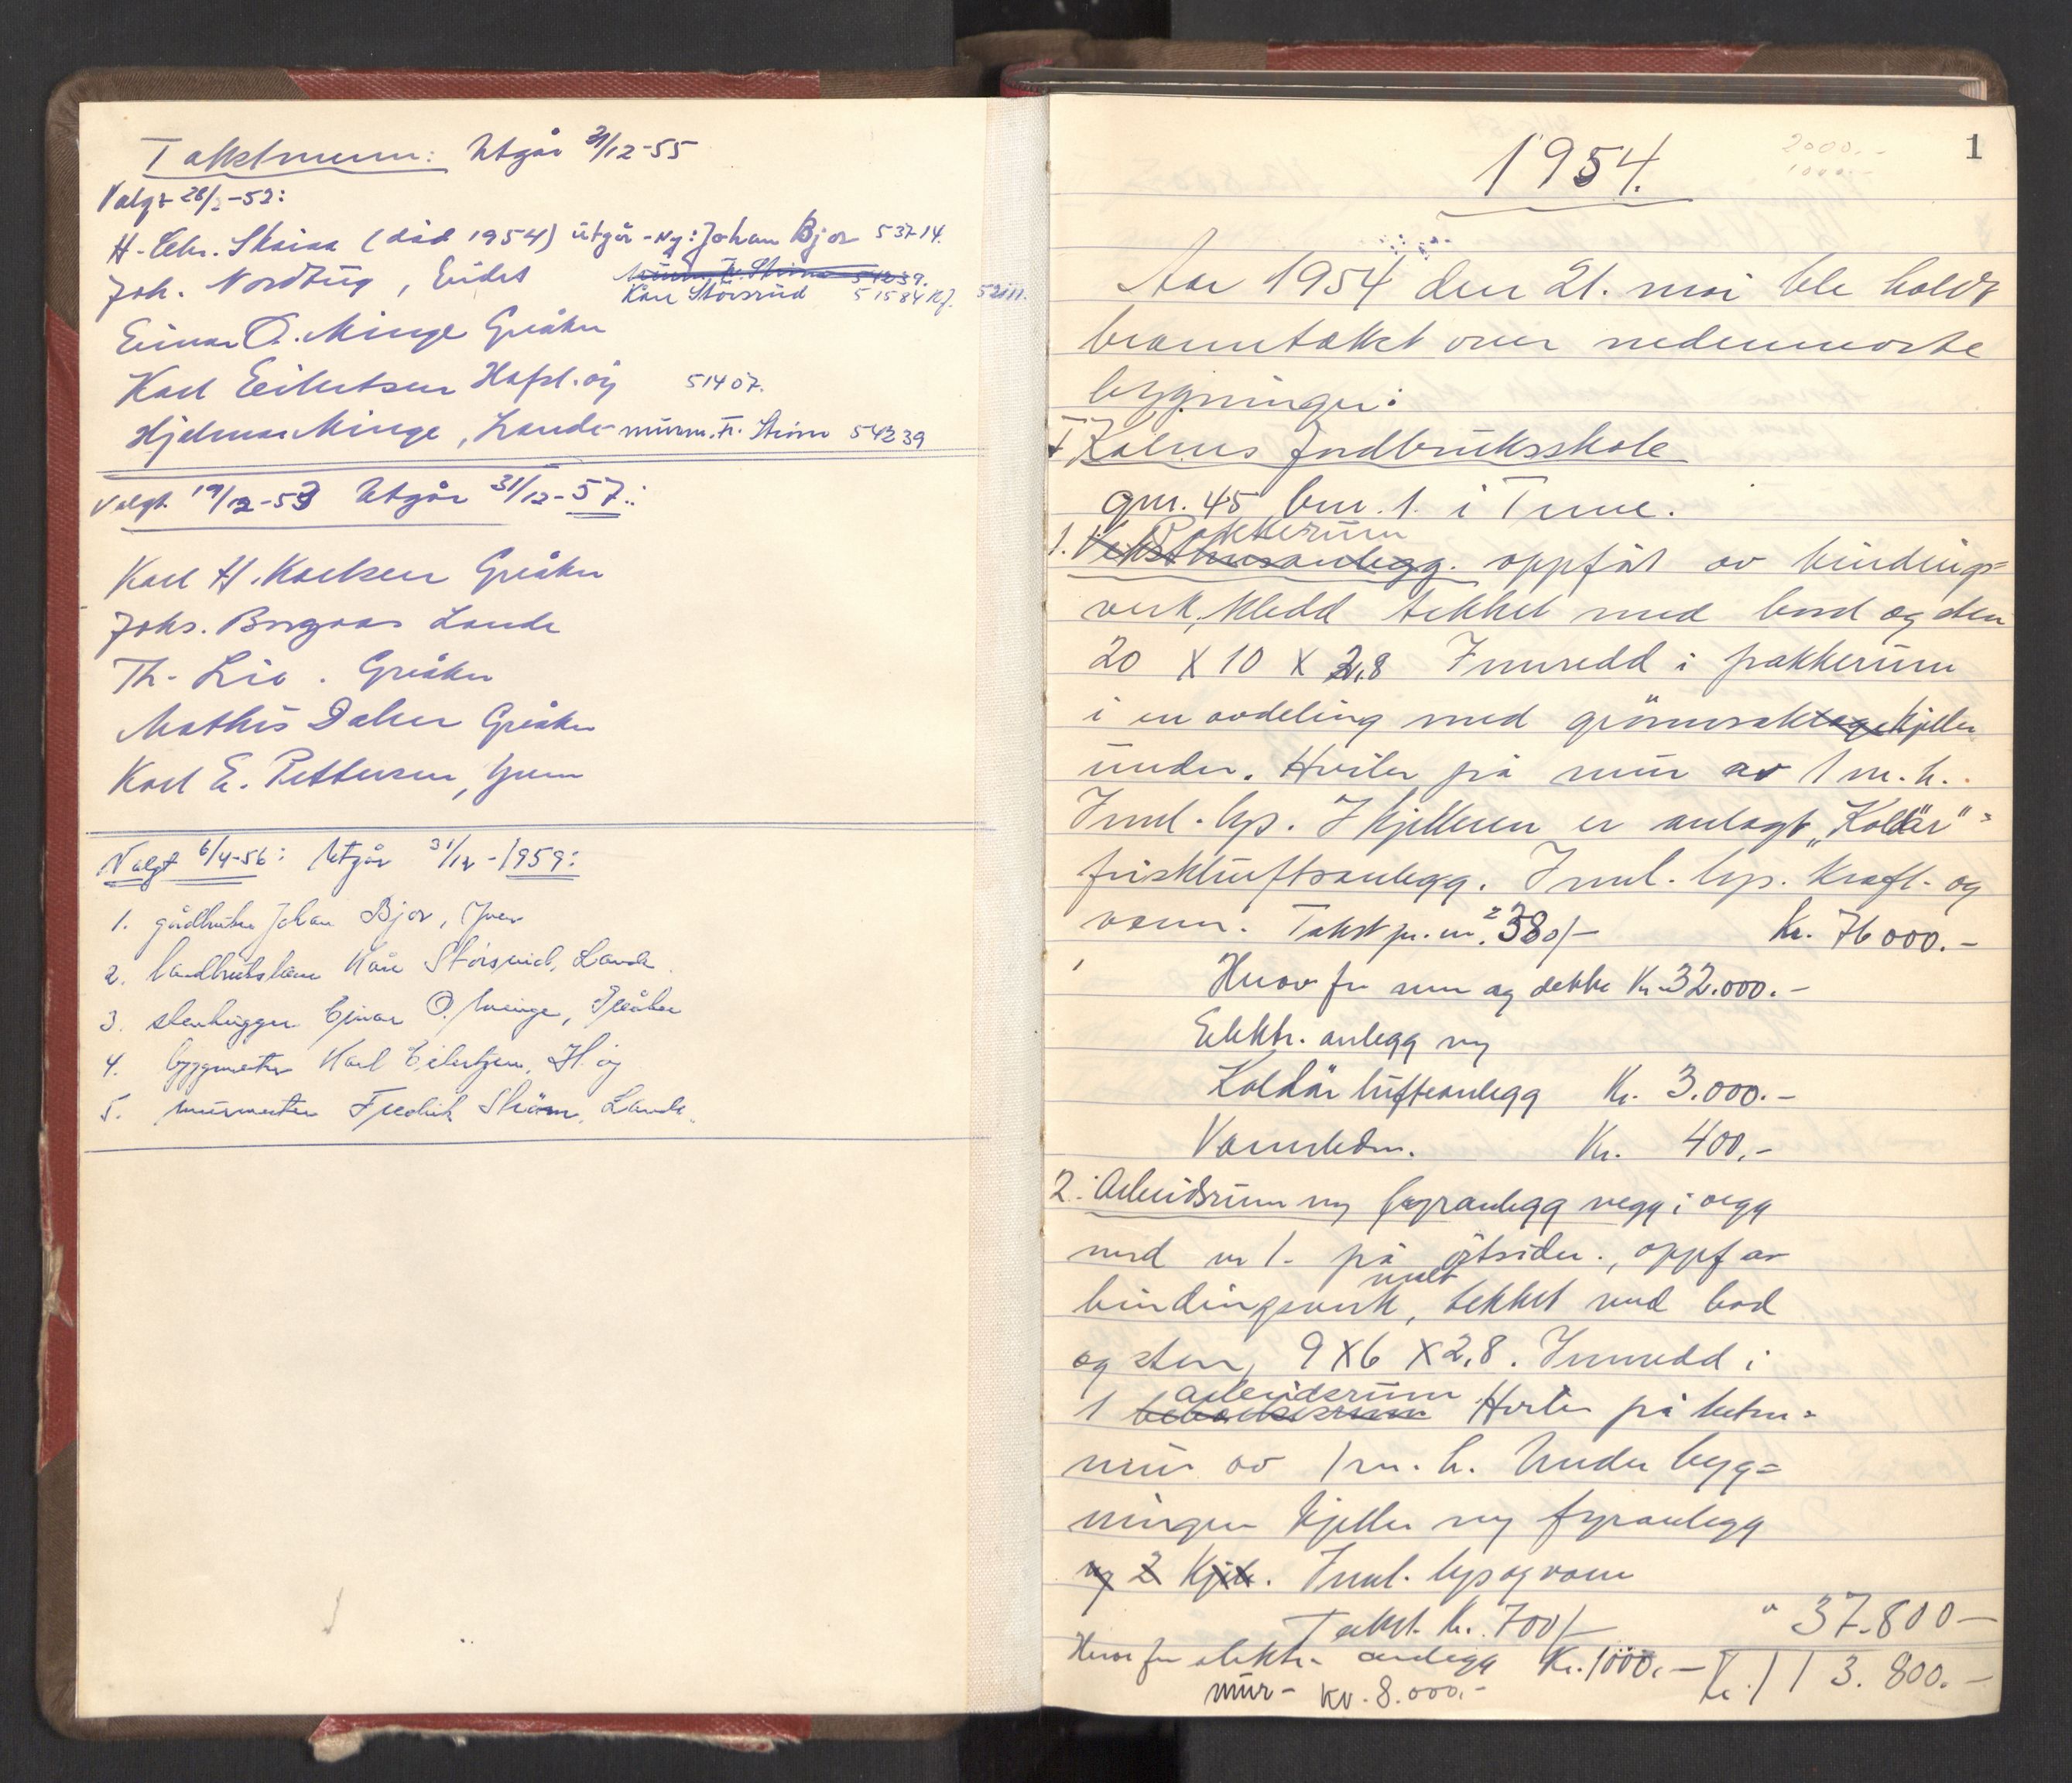 Takstmenn: Utgår 31/12-55
Valgt 28/2-52:
H. Chr. Skaiaa (død 1954) utgår - Ny: Johan Bjor 53714.
Joh. Nordbug, Eidet
murm. Fr. Strøm 54239.
Kåre Storsrud 51584 Kf. 52111.
Einar O. Minge Greåker
Karl Eilertsen Hafsl.øy 51407.
Hjelmar Minge, Lande - murm. Fr. Strøm 54239
Valgt 19/12-53 Utgår 31/12-57:
Karl H. Karlsen Greåker
Johs. Borgaas Lande
Th. Lie. Greåker
Mathis Dalen Greåker
Karl E. Pettersen, Yven
Valgt 6/4-56: Utgår 31/12-1959:
1. gårdbruker Johan Bjor, Yven
2. landbrukslærer Kåre Storsrud, Lande
3. stenhugger Ejnar O. Minge, Greåker
4. byggmester Karl Eilertsen, H.øy
5. murmester Fredrik Strøm, Lande.
1
2000.-
1000.-
1954.
Aar 1954 den 21. mai ble holdt
branntakst over nedennevnte
bygninger:
I Kalnes Jordbruksskole
gnr. 45 bnr. 1. i Tune.
Pakkerum
1. Veksthusanlegg. oppført av bindings=
verk, kledd tekket med bord og sten
20 X 10 X 2,8 Innredd i pakkerum
i en avdeling med grønnsakkjeller
under. Hviler på mur av 1 m. h.
Innl. lys. I kjelleren er anlagt "Koldär"=
friskluftsanlegg. Innl. lys. kraft- og
vann. Takst pr. m² 380/- Kr. 76000.-
Hvorav for mur og dekke Kr. 32.000.-
Elektr. anlegg og
Koldär lufteanlegg Kr. 3.000.-
Vannledn. Kr. 400.-
2. Arbeidsrum og fyranlegg vegg i vegg
med nr 1. på østsiden., oppf av
murt
bindingsverk, tekket med bord
og sten, 9 X 6 X 2,8. Innredd i
arbeidsrum
1 Hviler på betong=
mur av 1 m. h. Under byg=
ningen kjeller og fyranlegg
og 2 Kjele. Innl. lys og vann
Takst. Kr. 700/- " 37.800-
Hvorav for elektr. anlegg Kr. 1000.- Kr. 113.800.-
mur- Kr. 8.000.-